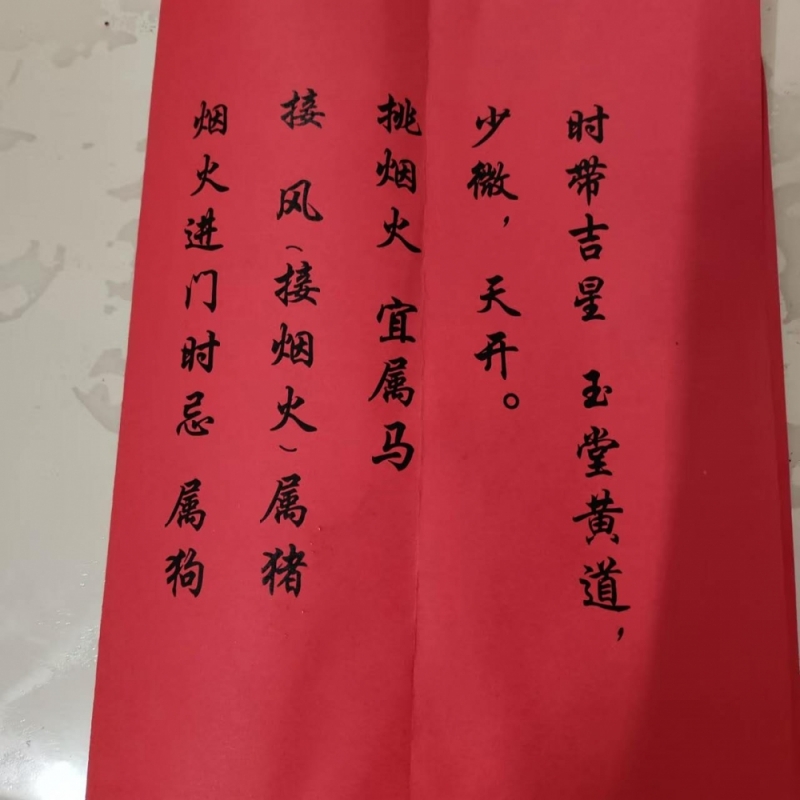 时带吉星 玉堂黄道，
少微， 天开。
挑烟火 宜属马
接 风（接烟火）属猪
烟火进门时忌 属狗